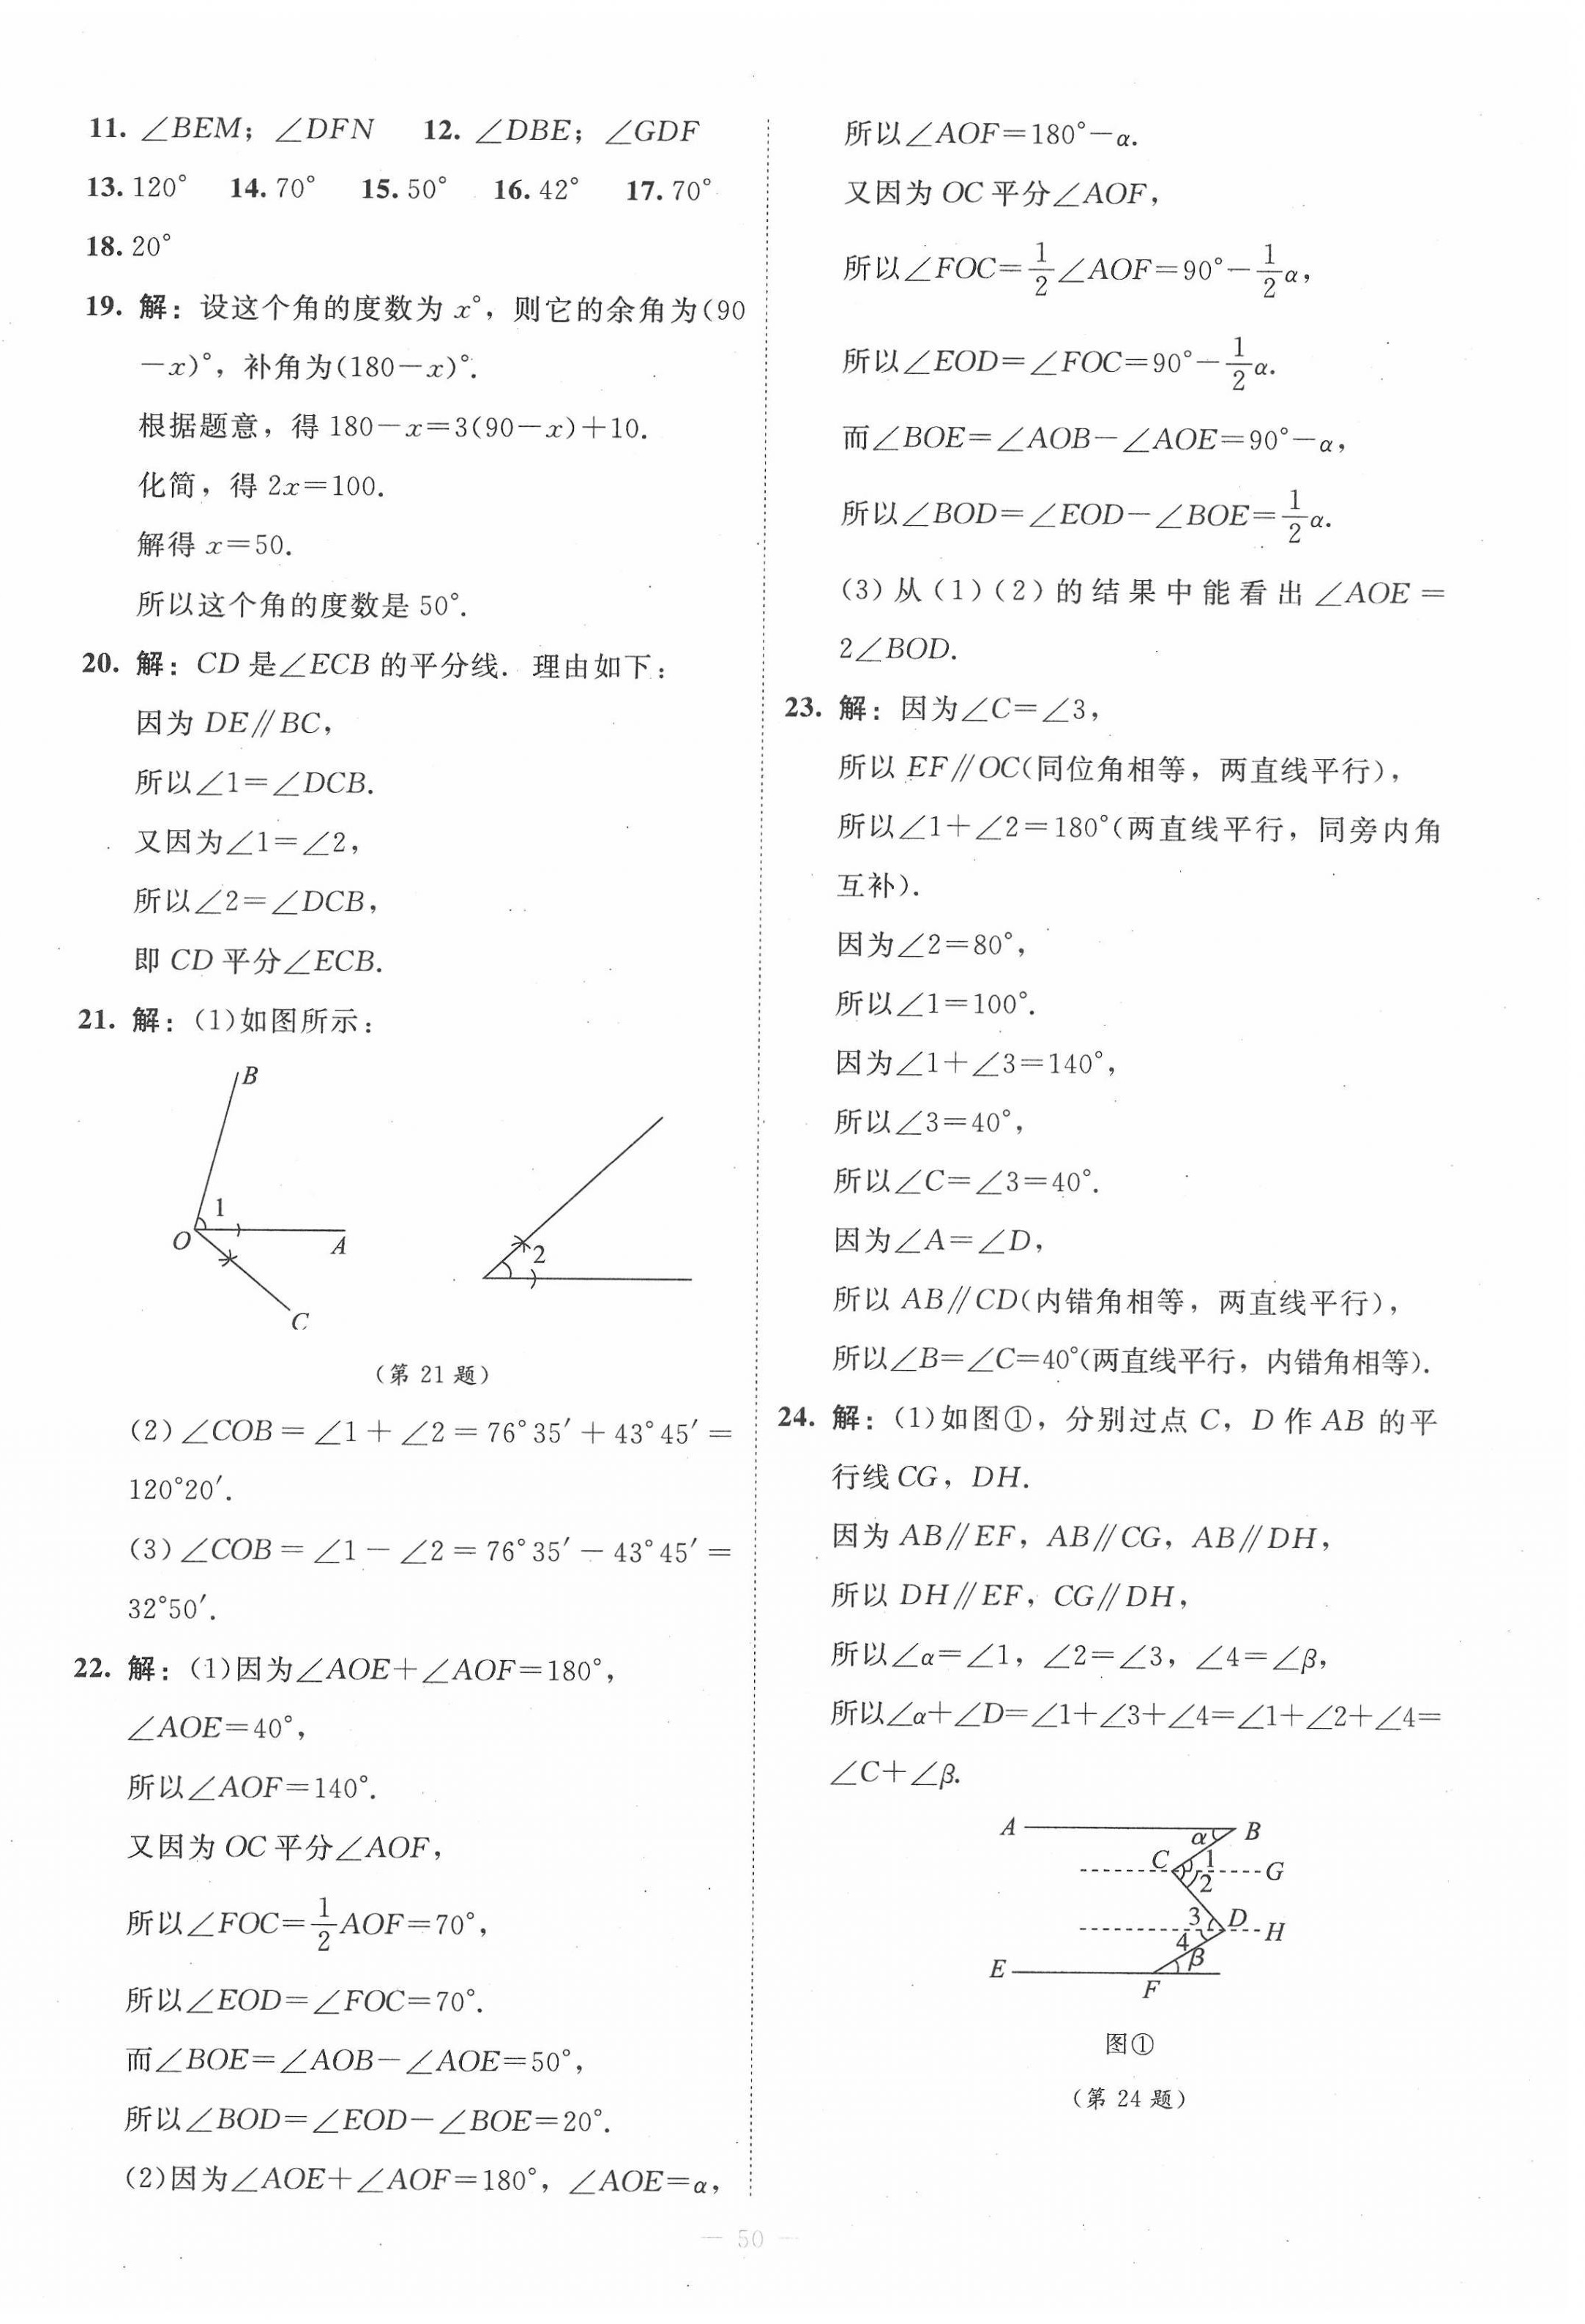 11. ∠BEM；∠DFN 12. ∠DBE；∠GDF
13. 120° 14. 70° 15. 50° 16. 42° 17. 70°
18. 20°
19. 解：设这个角的度数为 x°，则它的余角为(90
－x)°，补角为(180－x)°.
根据题意，得 180－x＝3(90－x)＋10.
化简，得 2x＝100.
解得 x＝50.
所以这个角的度数是 50°.
20. 解：CD 是∠ECB 的平分线. 理由如下：
因为 DE∥BC，
所以∠1＝∠DCB.
又因为∠1＝∠2，
所以∠2＝∠DCB，
即 CD 平分∠ECB.
21. 解：(1)如图所示：
B
1
O
A
C
2
(第 21 题)
(2)∠COB＝∠1＋∠2＝76°35′＋43°45′＝
120°20′.
(3)∠COB＝∠1－∠2＝76°35′－43°45′＝
32°50′.
22. 解：(1)因为∠AOE＋∠AOF＝180°，
∠AOE＝40°，
所以∠AOF＝140°.
又因为 OC 平分∠AOF，
所以∠FOC＝1/2 AOF＝70°，
所以∠EOD＝∠FOC＝70°.
而∠BOE＝∠AOB－∠AOE＝50°，
所以∠BOD＝∠EOD－∠BOE＝20°.
(2)因为∠AOE＋∠AOF＝180°，∠AOE＝α，
所以∠AOF＝180°－α.
又因为 OC 平分∠AOF，
所以∠FOC＝1/2∠AOF＝90°－1/2α，
所以∠EOD＝∠FOC＝90°－1/2α.
而∠BOE＝∠AOB－∠AOE＝90°－α，
所以∠BOD＝∠EOD－∠BOE＝1/2α.
(3)从(1)(2)的结果中能看出∠AOE＝
2∠BOD.
23. 解：因为∠C＝∠3，
所以 EF∥OC(同位角相等，两直线平行)，
所以∠1＋∠2＝180°(两直线平行，同旁内角
互补).
因为∠2＝80°，
所以∠1＝100°.
因为∠1＋∠3＝140°，
所以∠3＝40°，
所以∠C＝∠3＝40°.
因为∠A＝∠D，
所以 AB∥CD(内错角相等，两直线平行)，
所以∠B＝∠C＝40°(两直线平行，内错角相等).
24. 解：(1)如图①，分别过点 C，D 作 AB 的平
行线 CG，DH.
因为 AB∥EF，AB∥CG，AB∥DH，
所以 DH∥EF，CG∥DH，
所以∠α＝∠1，∠2＝∠3，∠4＝∠β，
所以∠α＋∠D＝∠1＋∠3＋∠4＝∠1＋∠2＋∠4＝
∠C＋∠β.
A α B
C 1 G
2
3 D H
4
E β
F
图①
(第 24 题)
— 50 —